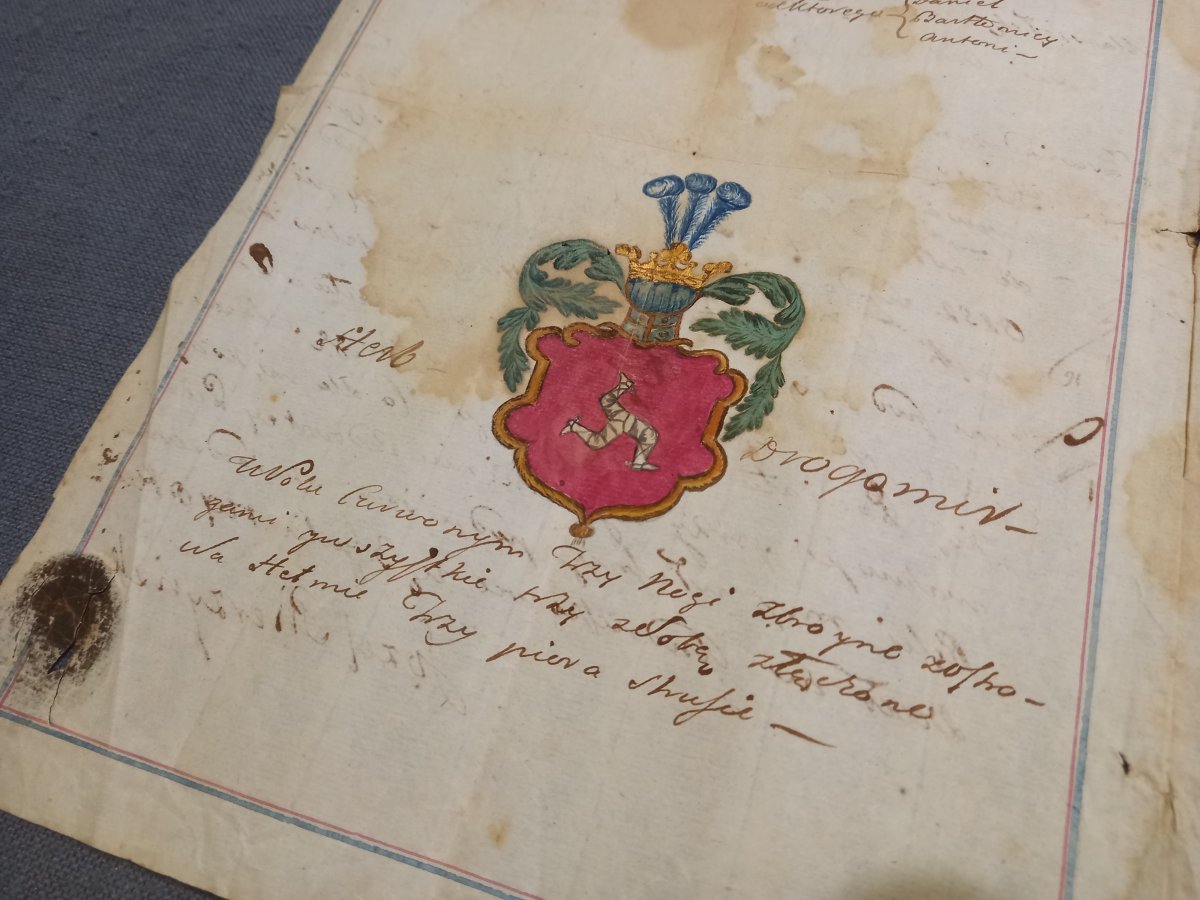 Daniel
Bartłomiey
Antoni –
Herb
Drogomir –
W Polu Czerwonym Trzy Nogi zbroyne zostro-
gami zwszystkie trzy zsobą złączone
Na Hełmie Trzy piora Strusie –